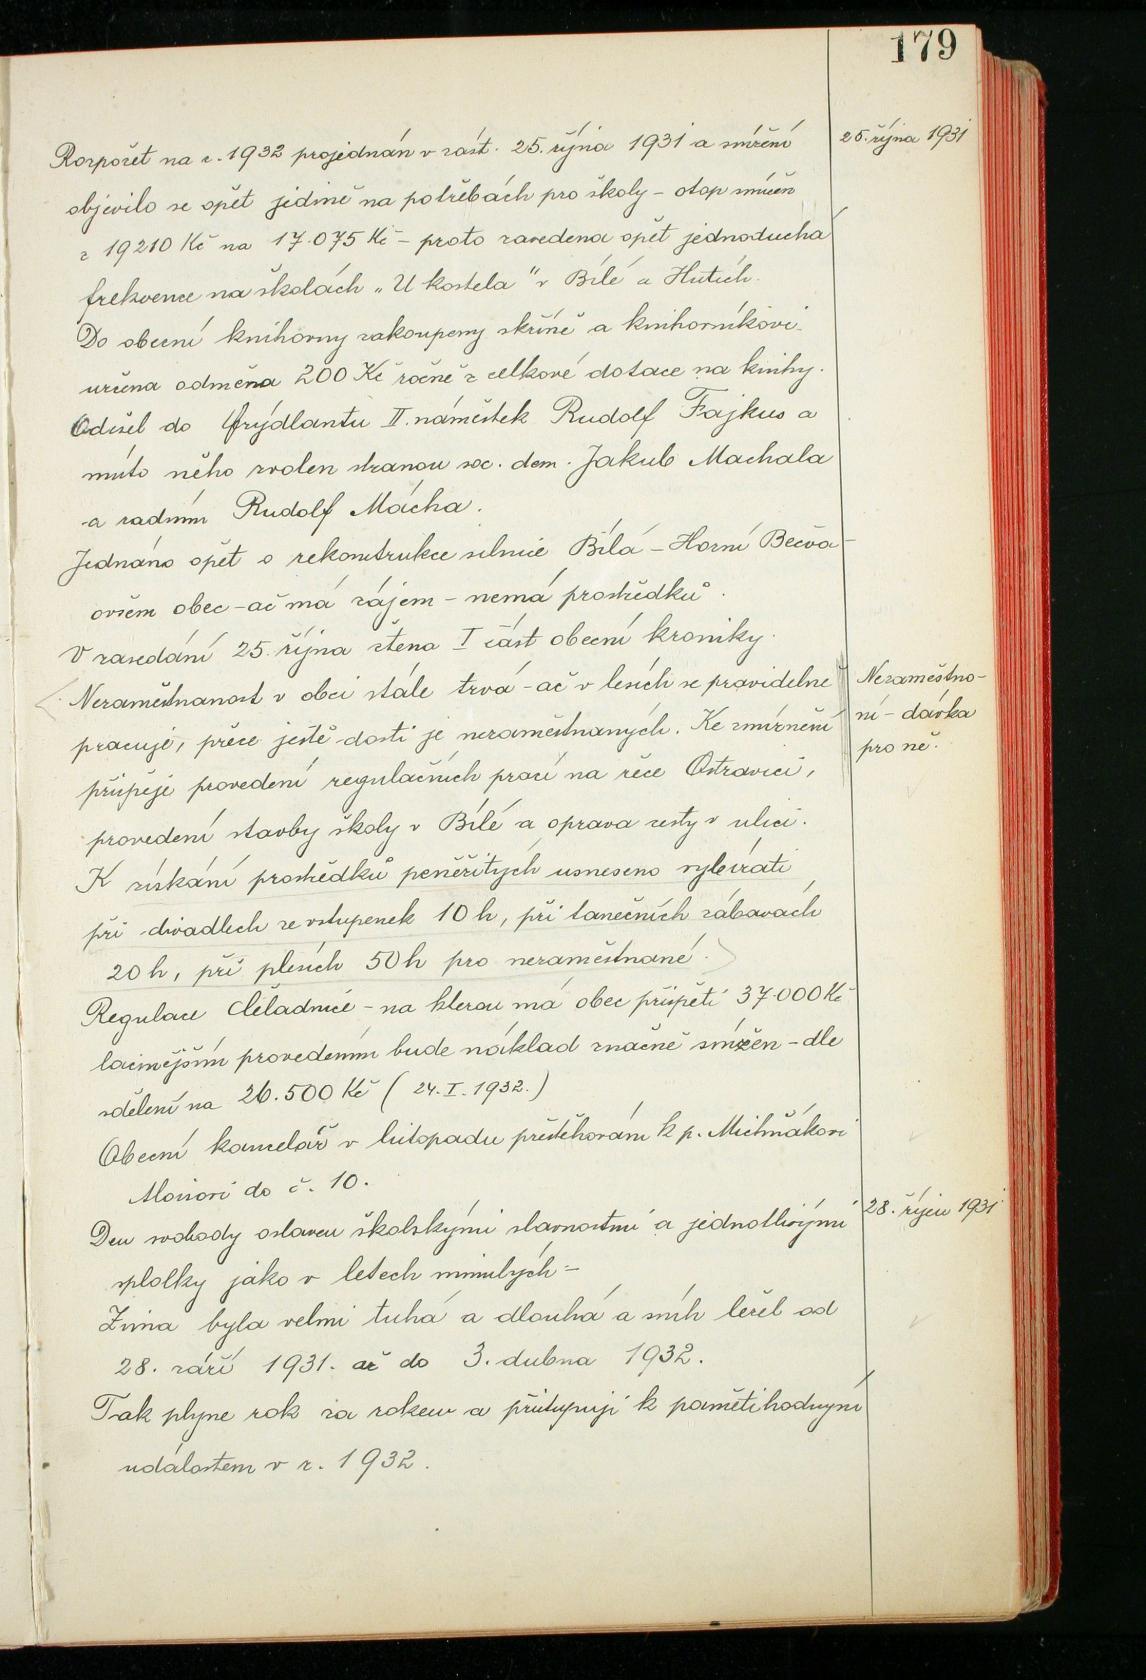 179
25. října 1931
Rozpočet na r. 1932 projednán v zást. 25. října 1931 a snížení
objevilo se opět jedině na potřebách pro školy – otop snížen
z 19210 Kč na 17.075 Kč – proto zavedena opět jednoduchá
frekvence na školách „U kostela" v Bílé a Hutích.
Do obecní knihovny zakoupeny skříně a knihovníkovi
určena odměna 200 Kč ročně z celkové dotace na knihy.
Odišel do Frýdlantu II. náměstek Rudolf Fajkus a
místo něho zvolen stranou soc. dem. Jakub Machala
a radním Rudolf Mácha.
Jednáno opět o rekonstrukce silnice Bílá – Horní Bečva –
ovšem obec – ač má zájem – nemá prostředků.
V zasedání 25. října čtena I část obecní kroniky.
Nezaměstnanost v obci stále trvá – ač v lesích se pravidelně
Nezaměstna-
ní – dávka
pro ně.
pracuje, přece ještě dosti je nezaměstnaných. Ke zmírnění
přispěje provedení regulačních prací na řece Ostravici,
provedení stavby školy v Bílé a oprava cesty v ulici.
K získání prostředků peněžitých usneseno vybírati
při divadlech ze vstupenek 10 h, při tanečních zábavách
20 h, při plesích 50 h pro nezaměstnané.
Regulace Čeladnice – na kterou má obec přispěti 37.000 Kč
lacinějším provedením bude náklad značně snížen – dle
sdělení na 26.500 Kč (24. I. 1932.)
Obecní kancelář v listopadu přestěhována k p. Michňákovi
Aloisovi do č. 10.
28. říjen 1931
Den svobody oslaven školskými slavnostmi a jednotlivými
spolky jako v letech minulých –
Zima byla velmi tuhá a dlouhá a sníh ležel od
28. září 1931. až do 3. dubna 1932.
Tak plyne rok za rokem a přistupuji k pamětihodným
událostem v r. 1932.